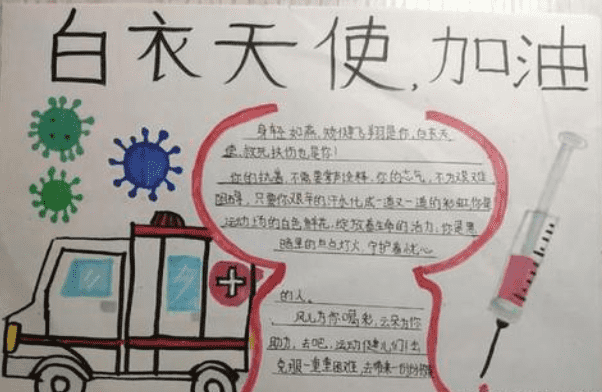 白衣天使,加油
身轻如燕,矫健飞翔是你,白衣天
使,救死扶伤也是你!
你的执着,不需要掌声诠释,你的志气,不为艰难
困阻,只要你艰辛的汗水化成一道又一道的彩虹,你是
运动场的白色鲜花,绽放着生命的活力;你是黑
暗里的点点灯火,守护着忧心
的人。
风儿为你喝彩,云朵为你
助力,去吧,运动健儿们!去
克服一重重困难,去带来一份份